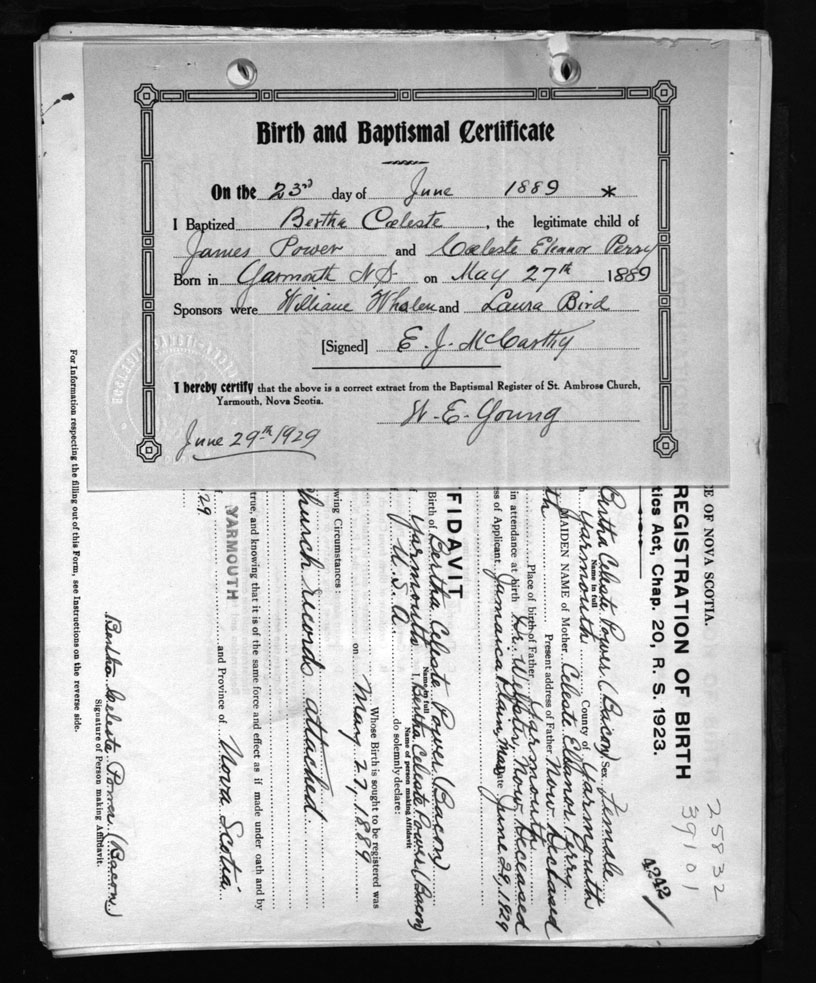 Birth and Baptismal Certificate
On the 23rd day of June 1889 *
I Baptized Bertha Cœleste, the legitimate child of
James Power and Cœleste Eleanor Perry
Born in Yarmouth N.S. on May 27th 1889
Sponsors were William Whalen and Laura Bird
[Signed] E. J. McCarthy
I hereby certify that the above is a correct extract from the Baptismal Register of St. Ambrose Church,
Yarmouth, Nova Scotia.
W. E. Young
June 29th 1929
25832
39101
4242
CE OF NOVA SCOTIA.
REGISTRATION OF BIRTH
tics Act, Chap. 20, R. S. 1923.
Bertha Celeste Power (Bacon) Sex Female
Name in full
Yarmouth County of Yarmouth
MAIDEN NAME of Mother Celeste Eleanor Perry
th Present address of Father Now Deceased
Place of birth of Father Yarmouth
in attendance at birth Dr. Webster, Now Deceased
ss of Applicant Jamaica Plain, Mass Date June 29, 1929
FFIDAVIT
Birth of Bertha Celeste Power (Bacon)
Name in full
Yarmouth I, Bertha Celeste Power (Bacon)
Name of person making Affidavit
U.S.A do solemnly declare:
Whose Birth is sought to be registered was
on May 27, 1889
wing Circumstances:
hurch records attached
true, and knowing that it is of the same force and effect as if made under oath and by
YARMOUTH and Province of Nova Scotia
29
Bertha Celeste Power (Bacon)
Signature of Person making Affidavit.
For Information respecting the filling out of this Form, see Instructions on the reverse side.